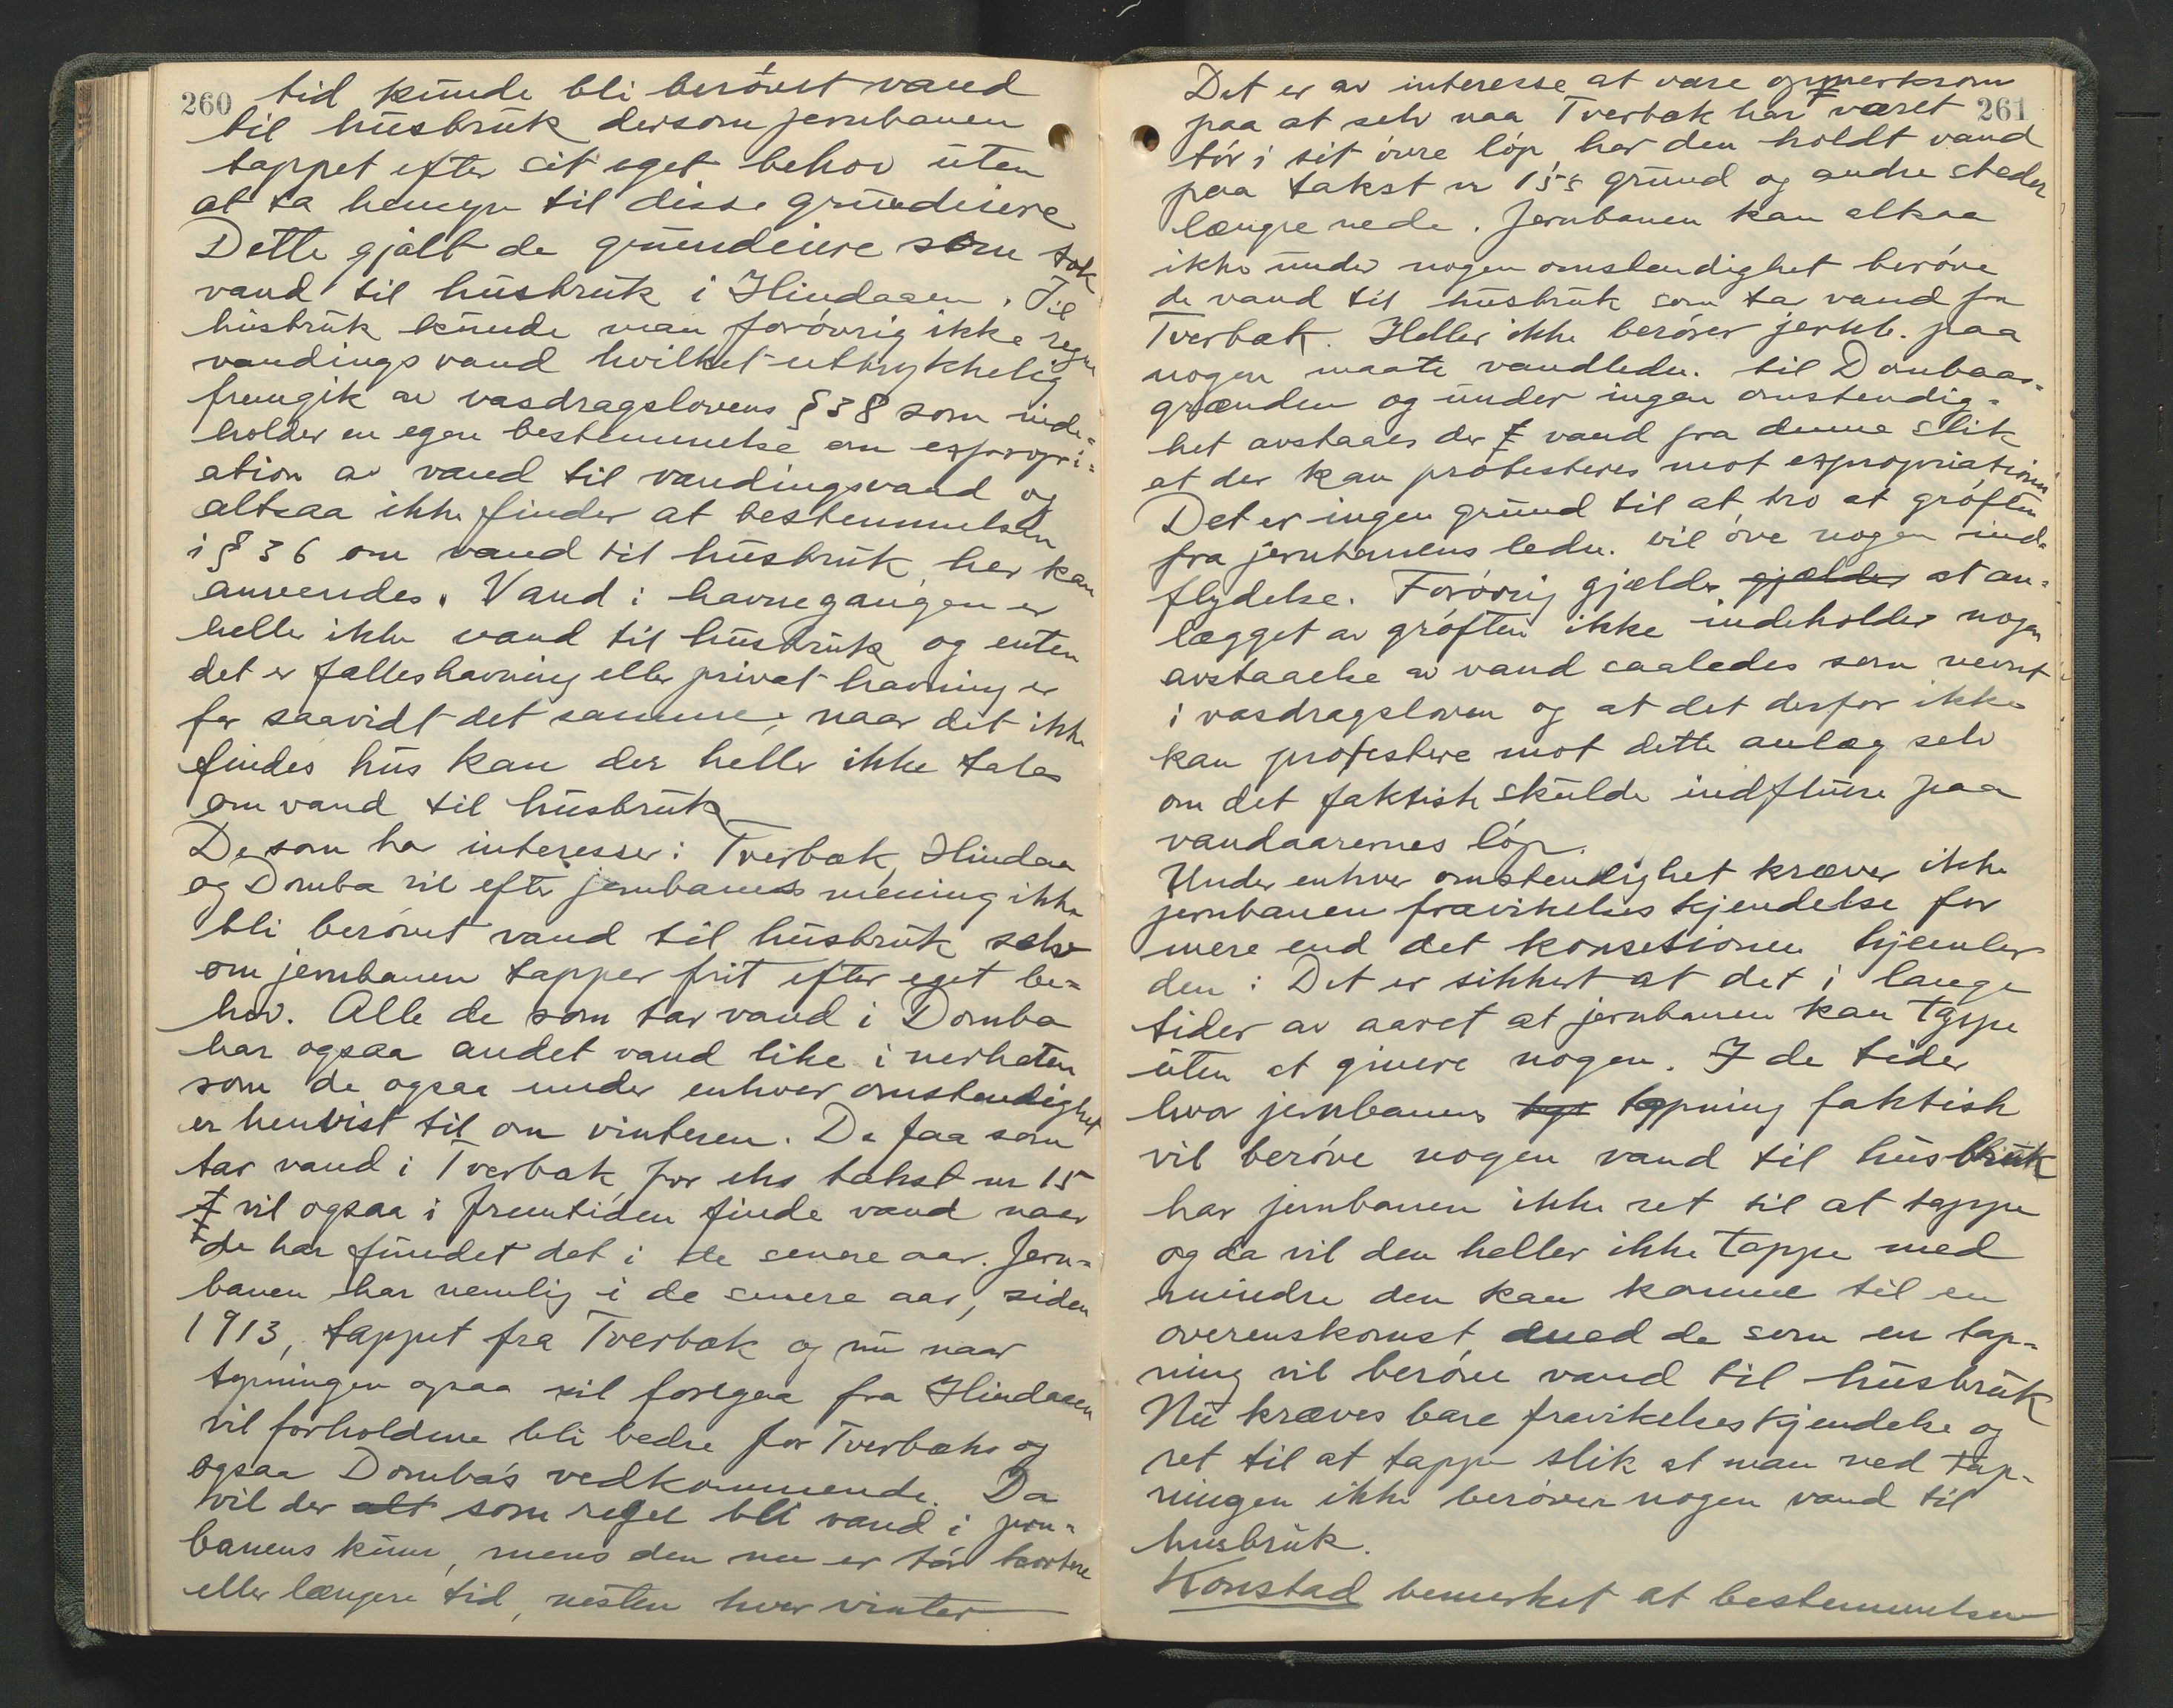 260
tid kunde bli berövet vand
til husbruk dersom jernbanen
tappet efter sit eget behov uten
at ta hensyn til disse grundeiere
Dette gjaldt de grundeiere som tok
vand til husbruk i Hindaaen. Til
husbruk kunde man forövrig ikke regne
vandingsvand hvilket uttrykkelig
fremgik av vasdragslovens § 38 som inde-
holder en egen bestemmelse om expropri-
ation av vand til vandingsvand og
altsaa ikke finder at bestemmelsen
i § 36 om vand til husbruk her kan
anvendes. Vand i havnegangen er
heller ikke vand til husbruk og enten
det er fælleshavning eller privat havning er
for saavidt det samme; naar det ikke
findes hus kan der heller ikke tales
om vand til husbruk
De som har interesser i Tverbæk, Hindaa
og Domba vil efter jernbanens mening ikke
bli berövet vand til husbruk selv
om jernbanen tapper frit efter eget be-
hov. Alle de som tar vand i Domba
har ogsaa andet vand like i nerheten
som de ogsaa under enhver omstendighet
er henvist til om vinteren. De faa som
tar vand i Tverbæk, for eks takst nr 15
vil ogsaa i fremtiden finde vand naar
de har fundet det i de senere aar. Jern-
banen har nemlig i de senere aar, siden
1913, tappet fra Tverbæk og nu naar
tapningen ogsaa vil foregaa fra Hindaaen
vil forholdene bli bedre for Tverbæks og
ogsaa Domba's vedkommende. Da
vil der alt som regel bli vand i jern-
banens kum, mens den nu er tör kortere
eller længere tid, nesten hver vinter
261
Det er av interesse at være opmerksom
paa at selv naa Tverbæk har været
tör i sit övre löp har den holdt vand
paa takst nr 15s grund og andre steder
længre nede. Jernbanen kan altsaa
ikke under nogen omstendighet beröve
de vand til husbruk som tar vand fra
Tverbæk. Heller ikke beröver jernb. paa
nogen maate vandledn. til Dombaas-
grænden og under ingen omstendig-
het avstaaes der vand fra denne slik
at der kan protesteres mot expropriationen
Det er ingen grund til at tro at gröften
fra jernbanens ledn. vil öve nogen ind-
flydelse. Forövrig gjælder gjælder at an-
lægget av gröften ikke indeholder nogen
avstaaelse av vand saaledes som nevnt
i vasdragsloven og at det derfor ikke
kan protestere mot dette anlæg selv
om det faktisk skulde indfluere paa
vandaarernes löp.
Under enhver omstendighet kræver ikke
jernbanen fravikelses kjendelse for
mere end det konsetionen hjemler
den: Det er sikkert at det i lange
tider av aaret at jernbanen kan tappe
uten at genere nogen. I de tider
hvor jernbanens tapning faktisk
vil beröve nogen vand til husbruk
har jernbanen ikke ret til at tappe
og da vil den heller ikke tappe med
mindre den kan komme til en
overenskomst med de som en tap-
ning vil beröve vand til husbruk
Nu kræves bare fravikelseskjendelse og
ret til at tappe slik at man ved tap-
ningen ikke beröver nogen vand til
husbruk.
Konstad bemerket at bestemmelsen